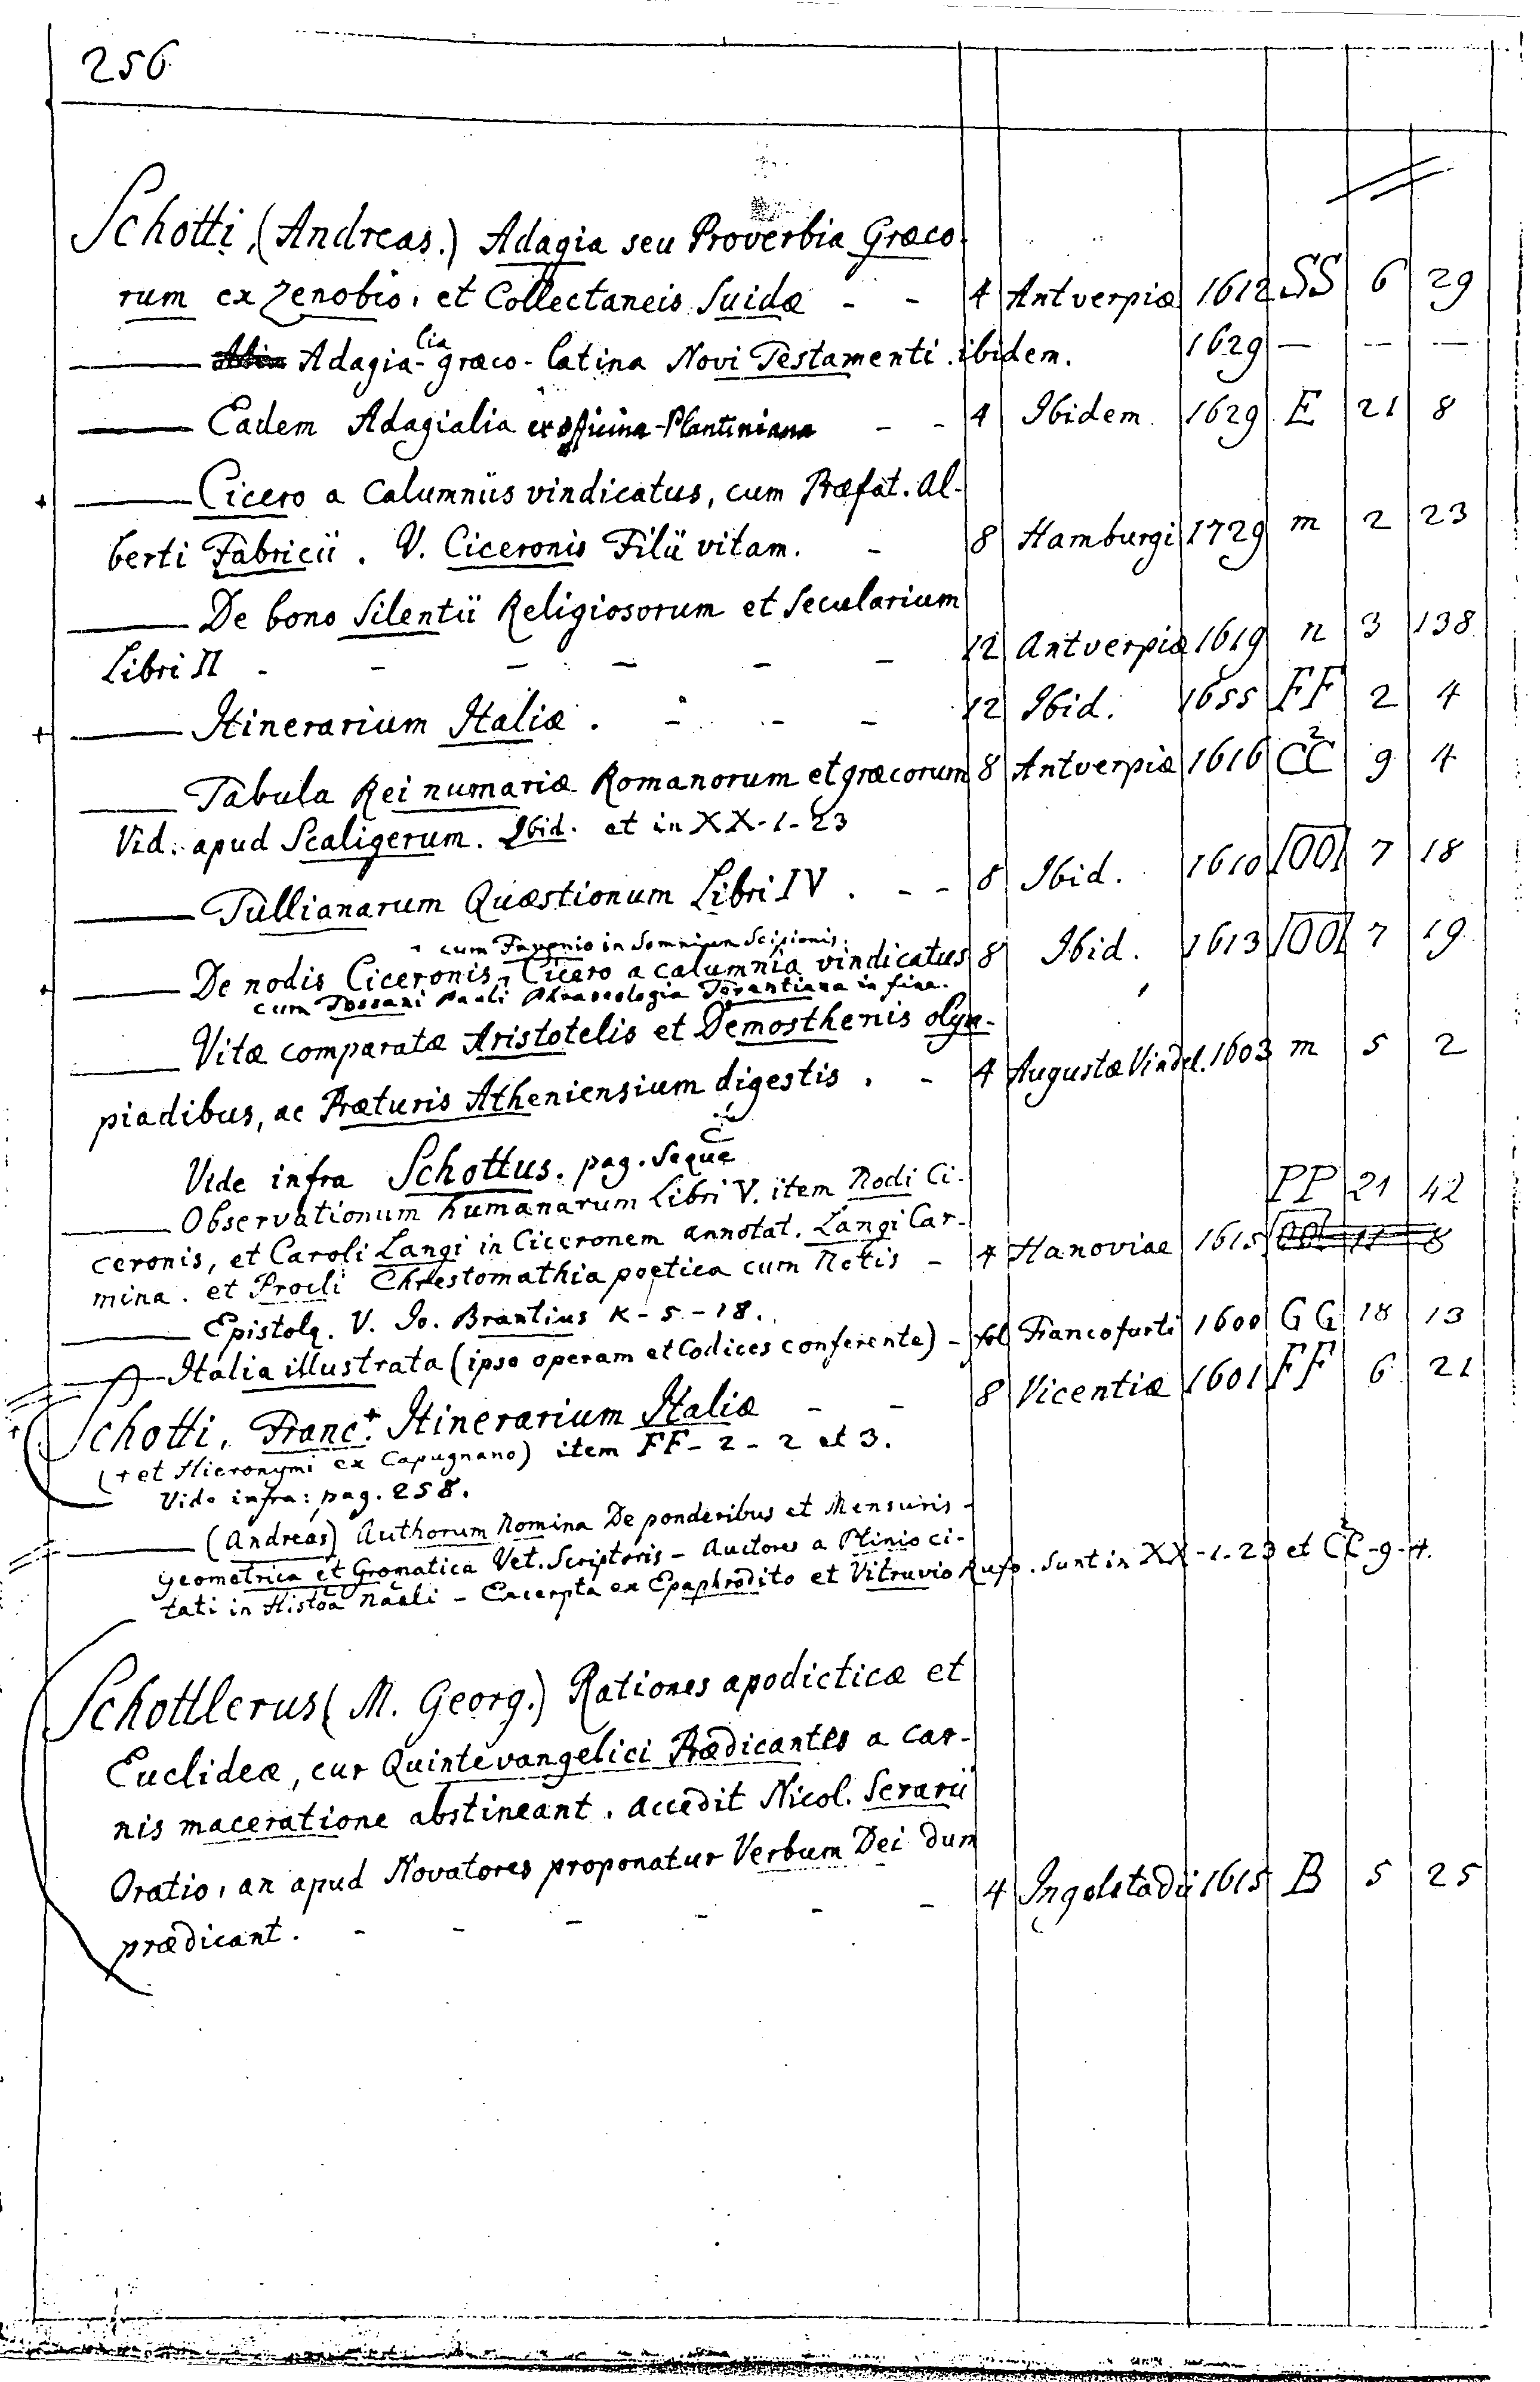 256
Schotti, (Andreas.) Adagia seu Proverbia Græco
rum ex Zenobio, et Collectaneis Suidæ - - 4 Antverpiæ 1612 SS 6 29
—— Adagia-lia græco-latina Novi Testamenti. ibidem. 1629 — -- —
—— Eadem Adagialia ex officina Plantiniana - - 4 Ibidem. 1629 E 21 8
+ —— Cicero a Calumniis vindicatus, cum Præfat. Al-
berti Fabricii. V. Ciceronis Filii vitam. - 8 Hamburgi 1729 m 2 23
—— De bono Silentii Religiosorum et Secularium
Libri II - - - - - - 12 Antverpiæ 1619 n 3 138
+ —— Itinerarium Italiæ. - - - 12 Ibid. 1655 FF 2 4
—— Tabula Rei numariæ Romanorum et græcorum 8 Antverpiæ 1616 CC² 9 4
Vid. apud Scaligerum. Ibid. et in XX-1-23
—— Tullianarum Quæstionum Libri IV. - - 8 Ibid. 1610 OO 7 18
+ cum Favonio in Somnium Scipionis.
—— De nodis Ciceronis, Cicero a calumnia vindicatus 8 Ibid. 1613 OO 7 19
cum Tossani Pauli Phraseologia Terentiana in fine.
—— Vitæ comparatæ Aristotelis et Demosthenis olym-
piadibus, ac Præturis Atheniensium digestis. - 4 Augustæ Vindel. 1603 m 5 2
Vide infra Schottus. pag. Seque
—— Observationum humanarum Libri V. item Nodi Ci- PP 21 42
ceronis, et Caroli Langi in Ciceronem annotat. Langi Car-
mina. et Procli Chrestomathia poetica cum Notis - 4 Hanoviae 1615 OO 11 8
—— Epistolę. V. Jo. Brantius K-5-18.
—— Italia illustrata (ipso operam et Codices conferente) - fol Francofurti 1600 GG 18 13
Schotti, Franc.+ Itinerarium Italiæ - - 8 Vicentiæ 1601 FF 6 21
(+ et Hieronymi ex Capugnano) item FF-2-2 et 3.
Vide infra: pag. 258.
—— (Andreas) Authorum Nomina De ponderibus et Mensuris -
Geometrica et Gromatica Vet. Scriptoris - Auctores a Plinio ci-
tati in Histoa Naali - Excerpta ex Epaphrodito et Vitruvio Rufo. Sunt in XX-1-23 et CC²-9-4.
Schottlerus (M. Georg.) Rationes apodicticæ et
Euclideæ, cur Quintevangelici Prædicantes a car-
nis maceratione abstineant. accedit Nicol. Serarii
Oratio, an apud Novatores proponatur Verbum Dei dum
prædicant. - - - - - - 4 Ingolstadii 1615 B 5 25